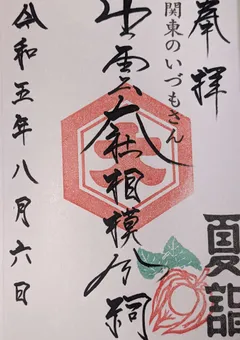 奉拝
関東のいづもさん
出雲大社相模分祠
令和五年八月六日
夏詣